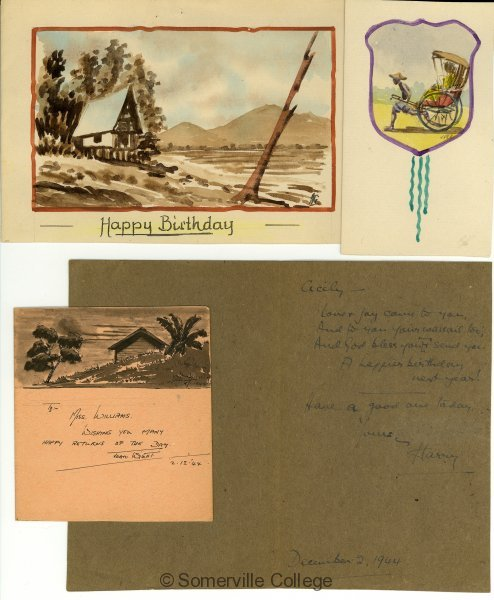 Happy Birthday
Cicily —
Love & joy come to you,
And to you your wassail too,
And God bless you & send you
A happier birthday
next year!
Have a good one today.
Yours —
Harry
To -
MISS WILLIAMS.
WISHING YOU MANY
HAPPY RETURNS OF THE DAY
2.12.44
December 2, 1944
© Somerville College